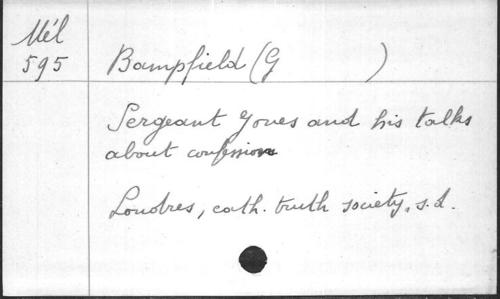 Mél
595
Bampfield (G )
Sergeant Jones and his talks
about confession
Londres, cath. truth society, s.d.